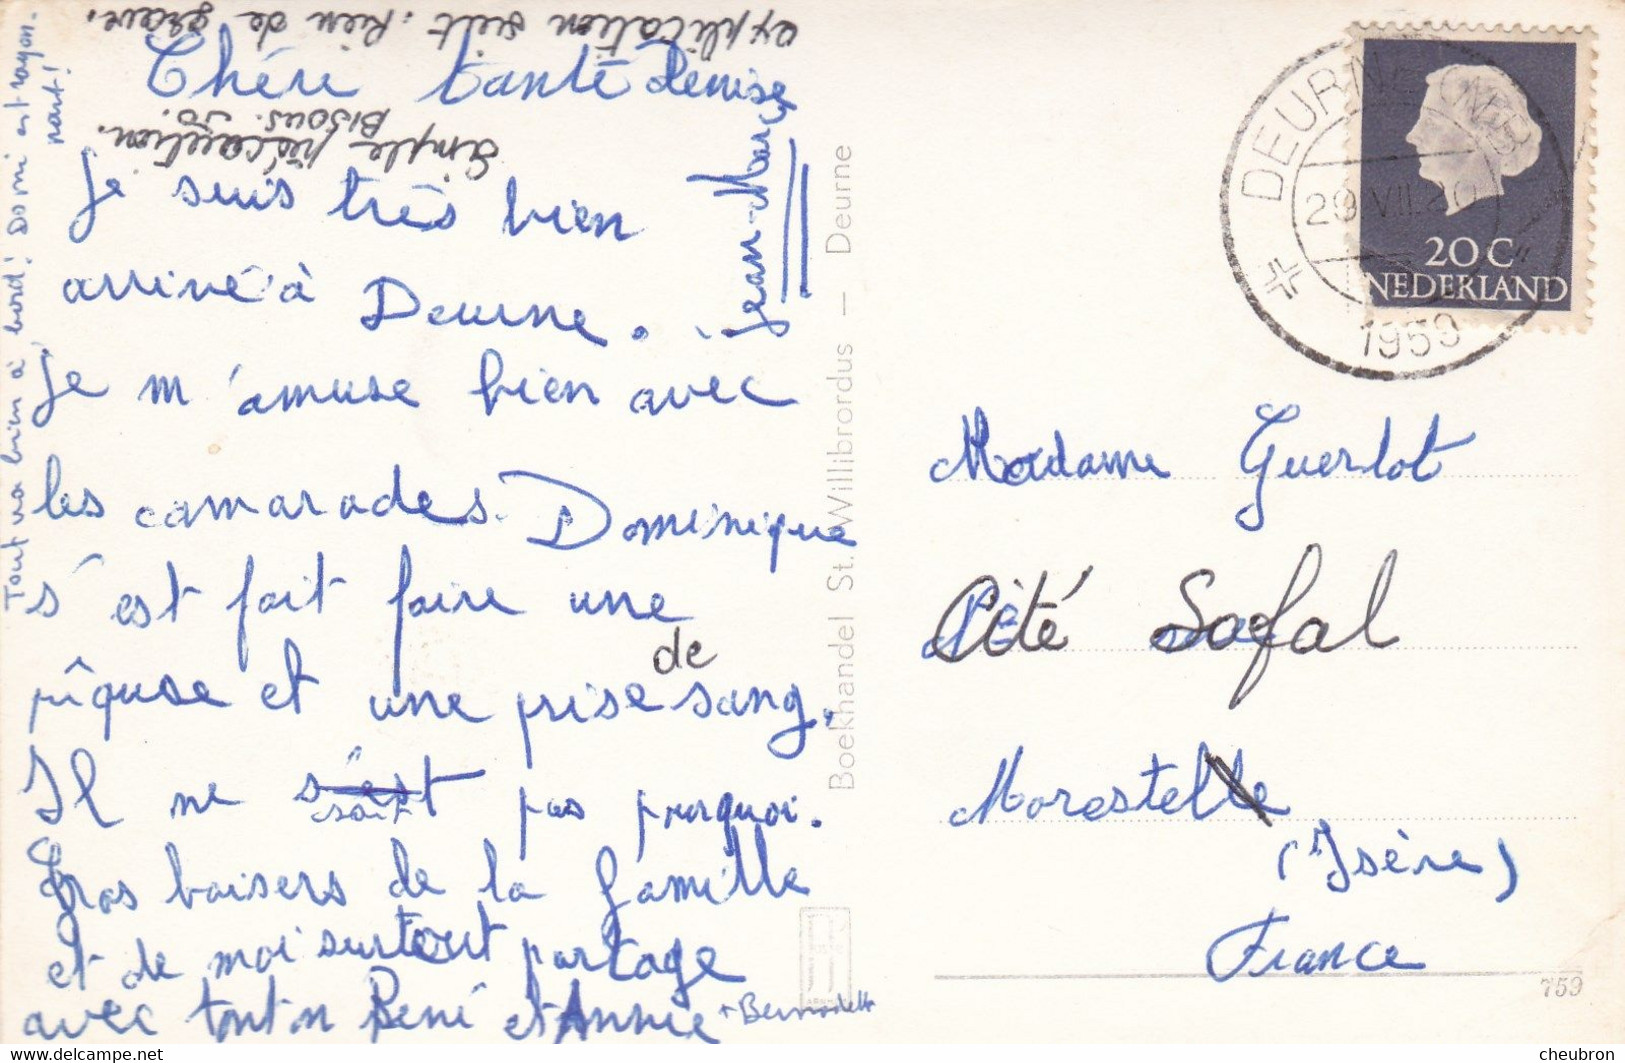 explication suit : Rien de grave.
Simple précaution.
Bisous.
Chére tante Denise
Je suis très bien
arrivé à Deurne.
Je m'amuse bien avec
les camarades. Dominique
s'est fait faire une
pîquse et une prise de sang.
Il ne s'est sait pas pourquoi.
Gros baisers de la famille
et de moi surtout partage
avec tonton René et Annie + Bernadette
Jean-Marc
Tout va bien à bord! Domi est rayon-
nant!
Boekhandel St. Willibrordus — Deurne
DEURNE (N.B.)
29.VII.20
1959
20 C
NEDERLAND
Madame Guerlot
Cité Safal
Morestelle
(Isère)
France
759
cheubron
https://www.delcampe.net